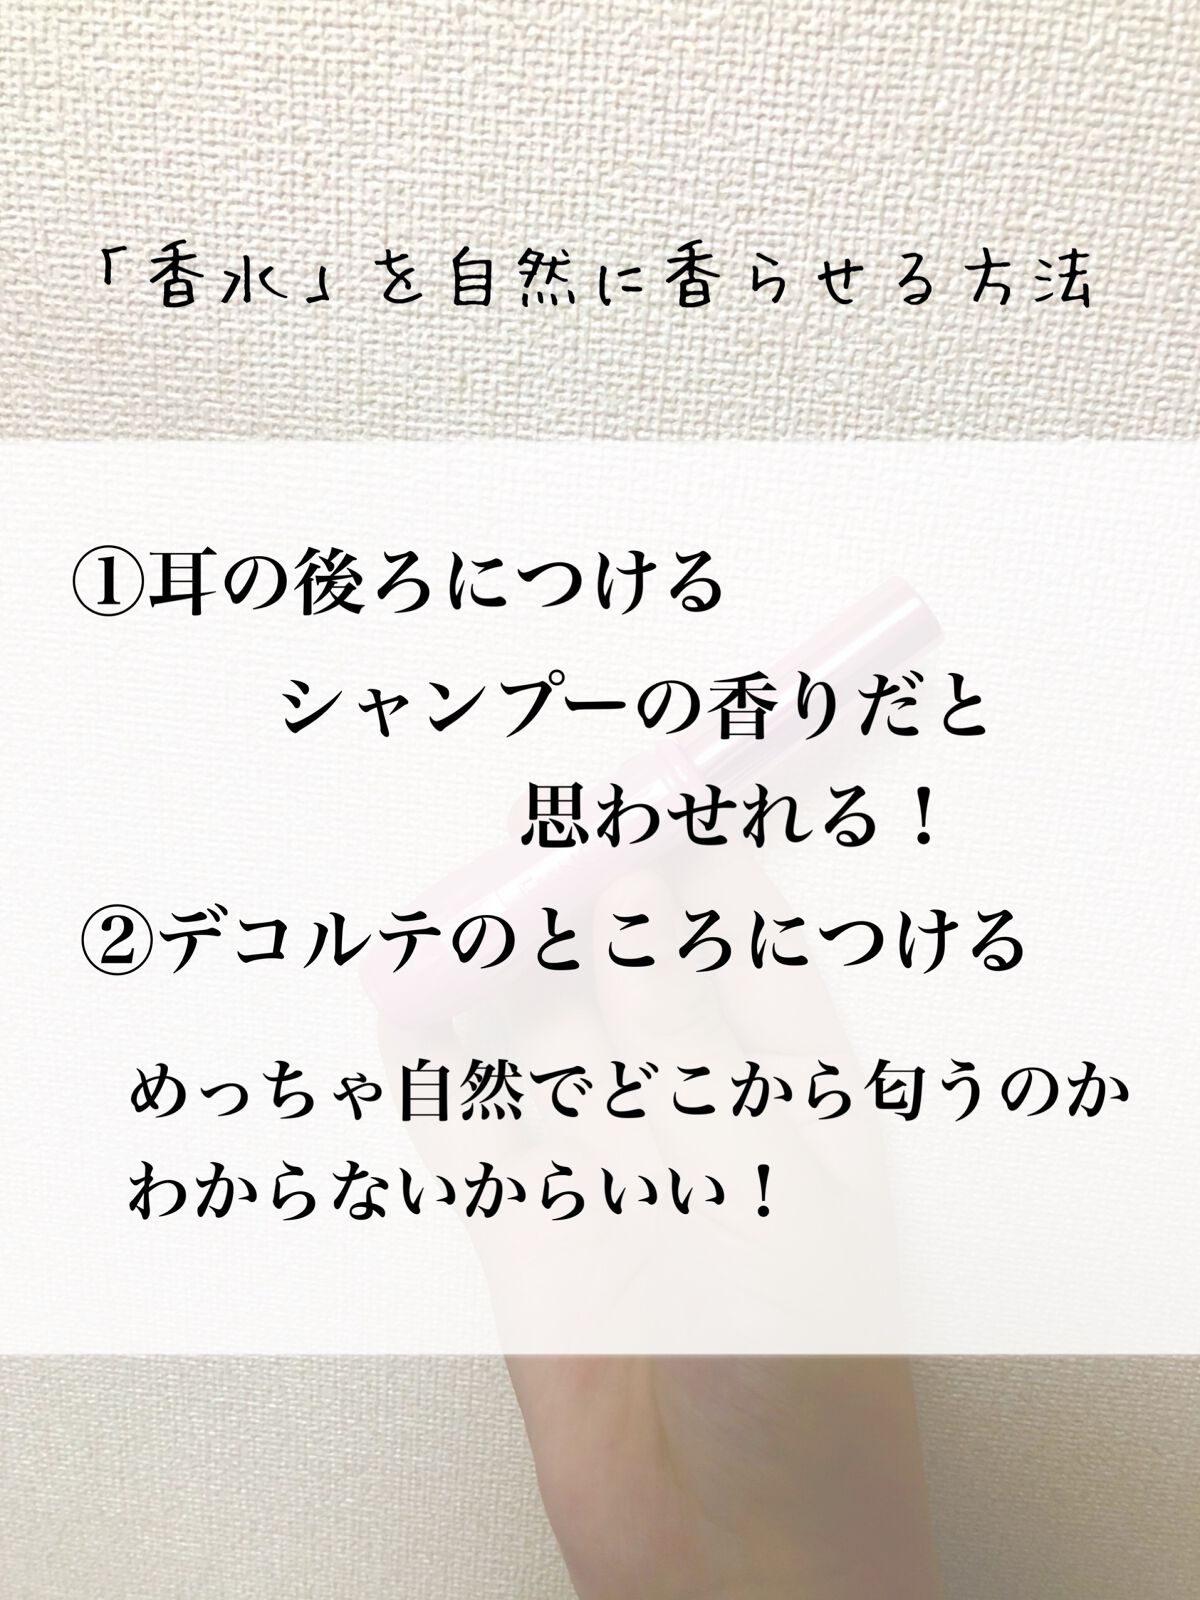 「香水」を自然に香らせる方法
①耳の後ろにつける
シャンプーの香りだと
思わせれる！
②デコルテのところにつける
めっちゃ自然でどこから匂うのか
わからないからいい！